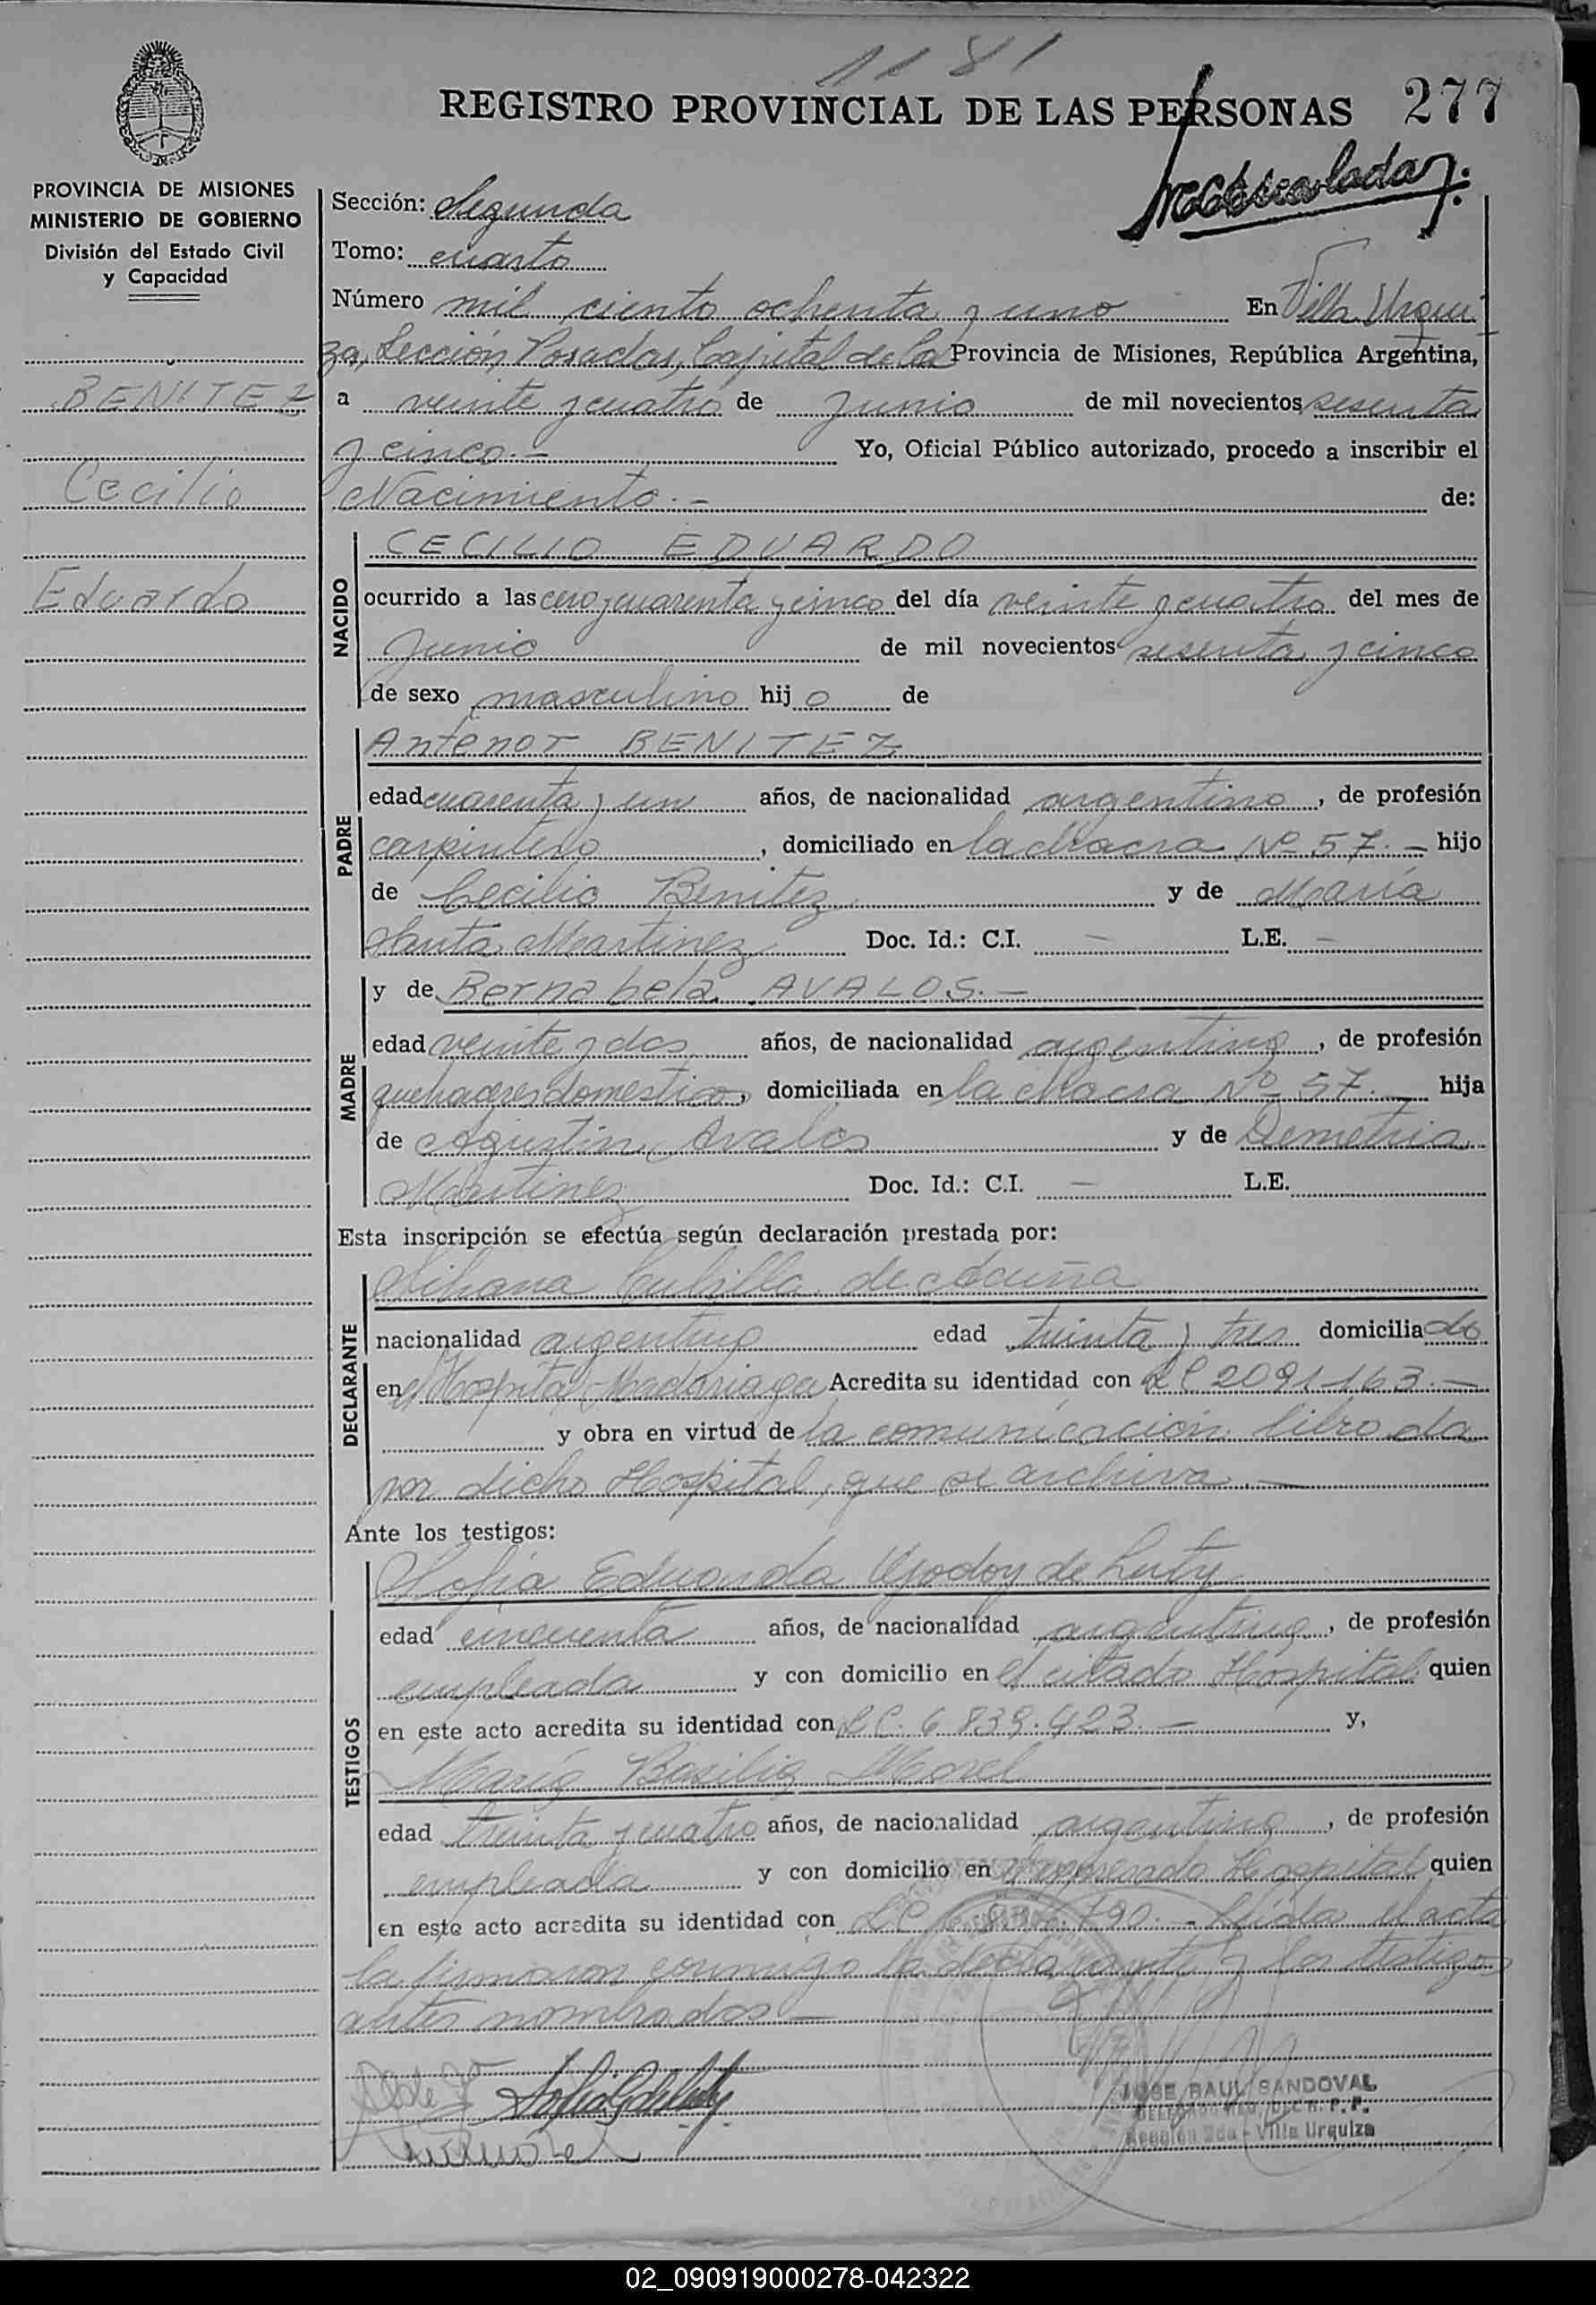 1181
REGISTRO PROVINCIAL DE LAS PERSONAS 277
PROVINCIA DE MISIONES
MINISTERIO DE GOBIERNO
División del Estado Civil
y Capacidad
BENITEZ
Cecilio
Eduardo
Sección: Segunda
Tomo: cuarto
Número mil ciento ochenta y uno En Villa Urqui
za, Sección Posadas, Capital de la Provincia de Misiones, República Argentina,
a veinte y cuatro de Junio de mil novecientos sesenta
y cinco.- Yo, Oficial Público autorizado, procedo a inscribir el
Nacimiento.- de:
NACIDO
CECILIO EDUARDO
ocurrido a las cero y cuarenta y cinco del día veinte y cuatro del mes de
Junio de mil novecientos sesenta y cinco
de sexo masculino hij o de
PADRE
Antenor BENITEZ
edad cuarenta y un años, de nacionalidad argentino, de profesión
carpintero, domiciliado en la chacra Nº 57.- hijo
de Cecilio Benitez y de María
Santa Martinez Doc. Id.: C.I. - L.E. -
MADRE
y de Bernabela AVALOS.-
edad veinte y dos años, de nacionalidad argentina, de profesión
quehaceres domestico, domiciliada en la chacra Nº 57.- hija
de Agustin Avalos y de Demetria
Martinez Doc. Id.: C.I. - L.E.
Esta inscripción se efectúa según declaración prestada por:
DECLARANTE
Cubilla de Acuña
nacionalidad argentina edad treinta y tres domicilia do
en el Hospital Madariaga Acredita su identidad con LC 2091163.-
y obra en virtud de la comunicación librada
por dicho Hospital, que se archiva.-
Ante los testigos:
TESTIGOS
Sofia Eduarda Godoy de Luty
edad cincuenta años, de nacionalidad argentina, de profesión
empleada y con domicilio en el citado Hospital quien
en este acto acredita su identidad con LC. 6.839.423.- y,
María Basilia Morel
edad treinta y cuatro años, de nacionalidad argentina, de profesión
empleada y con domicilio en Hospital quien
en este acto acredita su identidad con LC Leída el acta
la firmaron conmigo la declarante y los testigos
antes nombrados-
JOSE RAUL SANDOVAL
Sección 2da - Villa Urquiza
02_090919000278-042322